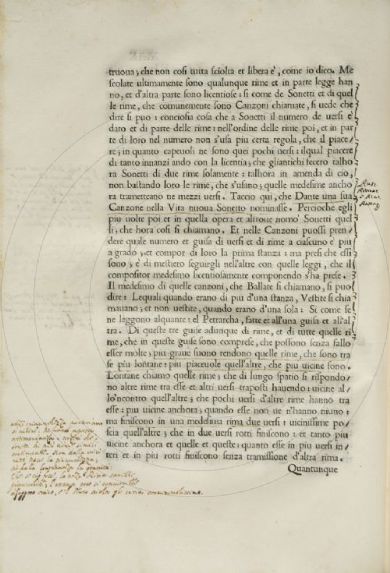 truoua; che non cosi tutta sciolta et libera è, come io dico. Me
scolate ultimamente sono qualunque rime et in parte legge han
no, et d'altra parte sono licentiose: si come de Sonetti et di quel
le rime, che comunemente sono Canzoni chiamate, si uede che
dire si puo: conciosia cosa che a Sonetti il numero de uersi è
dato et di parte delle rime: nell'ordine delle rime poi, et in par
te di loro nel numero non s'usa piu certa regola, che il piace/
re; in quanto capeuoli ne sono quei pochi uersi: ilqual piacere
di tanto innanzi ando con la licentia; che gliantichi fecero talho
ra Sonetti di due rime solamente: talhora in amenda di cio,
non bastando loro le rime, che s'usino; quelle medesime ancho
ra trametteano ne mezzi uersi. Taccio qui, che Dante una sua
Canzone nella Vita nuoua Sonetto nominasse. Percioche egli
piu uolte poi et in quella opera et altroue nomò Sonetti quel
li; che hora cosi si chiamano. Et nelle Canzoni puossi pren/
dere quale numero et guisa di uersi et di rime a ciascuno è piu
a grado; et compor di loro la prima stanza: ma presi che essi
sono; è di mestiero seguirgli nell'altre con quelle leggi, che il
compositor medesimo licentiosamente componendo s'ha prese.
Il medesimo di quelle canzoni, che Ballate si chiamano, si puo
dire: Lequali quando erano di piu d'una stanza, Vestite si chia
mauano; et non uestite, quando erano d'una sola: Si come se
ne leggono alquante nel Petrarcha, fatte et all'una guisa et all'al
tra. Di queste tre guise adunque di rime, et di tutte quelle ri/
me, che in queste guise sono comprese, che possono senza fallo
esser molte; piu graue suono rendono quelle rime, che sono tra
se piu lontane: piu piaceuole quell'altre, che piu uicine sono.
Lontane chiamo quelle rime; che di lungo spatio si rispondo/
no altre rime tra esse et altri uersi traposti hauendo: uicine al
lo'ncontro quell'altre; che pochi uersi d'altre rime hanno tra
esse: piu uicine anchora; quando esse non ue n'hanno niuno:
ma finiscono in una medesima rima due uersi: uicinissime po/
scia quell'altre; che in due uersi rotti finiscono: et tanto piu
uicine anchora et quelle et queste; quanto esse in piu uersi in/
teri et in piu rotti finiscono senza tramissione d'altra rima.
Quantunque